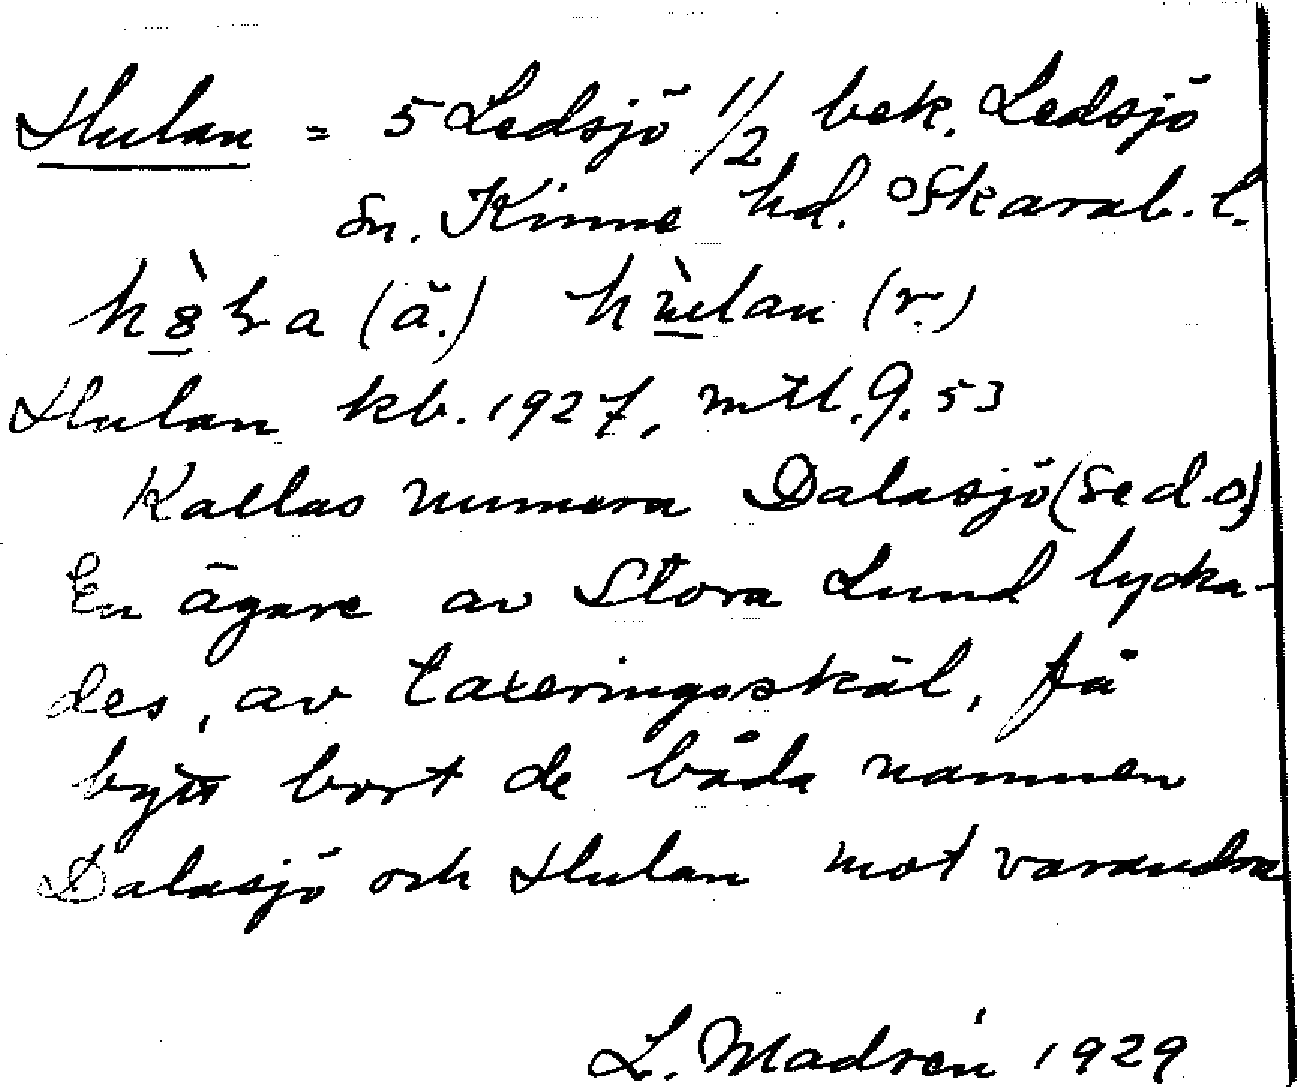 Hulan = 5 Ledsjö 1/2 bek. Ledsjö
sn. Kinne hd. Skarab. l.
(ä.) hùlan (r.)
Hulan kb. 1927, mtl. 9. 53
Kallas numera Dalasjö (se d.o)
En ägare av Stora Lund lycka-
des, av taxeringsskäl, få
bytt bort de båda namnen
Dalasjö och Hulan mot varandra
L. Madrén 1929